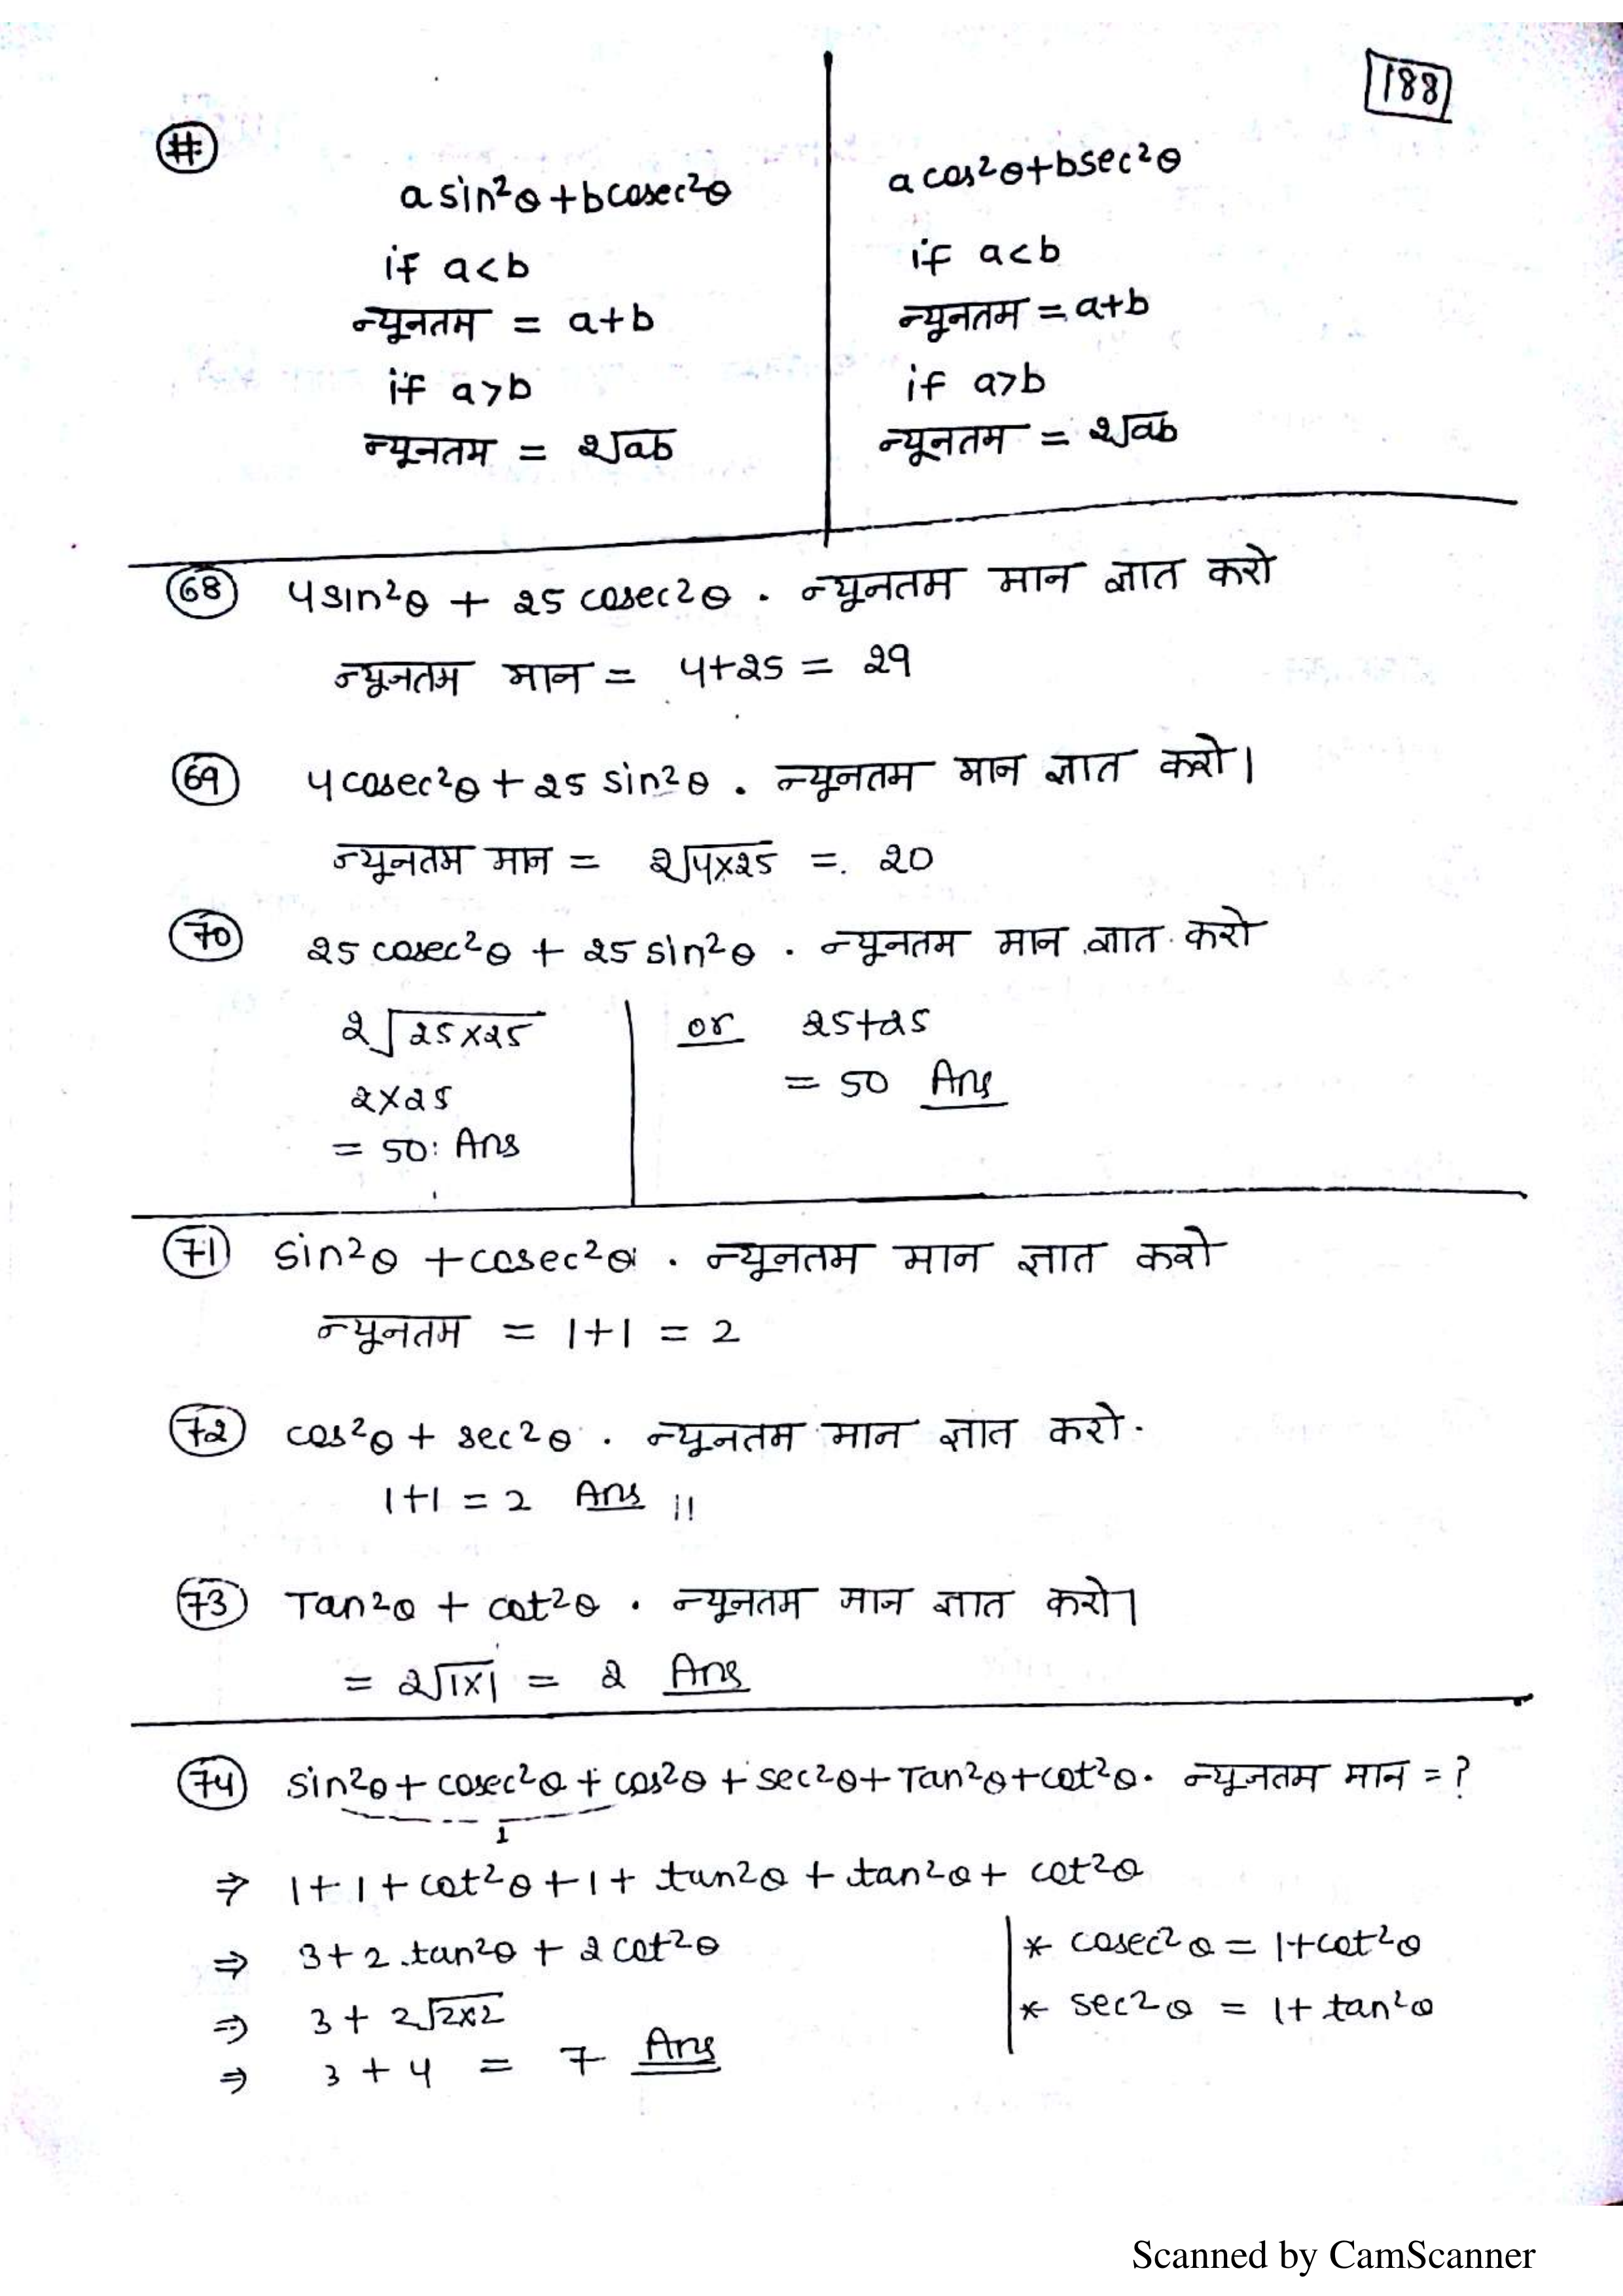 188
#
a sin²θ + b cosec²θ
if a<b
न्यूनतम = a+b
if a>b
न्यूनतम = 2√ab
a cos²θ + b sec²θ
if a<b
न्यूनतम = a+b
if a>b
न्यूनतम = 2√ab
68 4 sin²θ + 25 cosec²θ . न्यूनतम मान ज्ञात करो
न्यूनतम मान = 4+25 = 29
69 4 cosec²θ + 25 sin²θ . न्यूनतम मान ज्ञात करो।
न्यूनतम मान = 2√4×25 = 20
70 25 cosec²θ + 25 sin²θ . न्यूनतम मान ज्ञात करो
2√25×25
2×25
= 50 Ans
or 25+25
= 50 Ans
71 sin²θ + cosec²θ . न्यूनतम मान ज्ञात करो
न्यूनतम = 1+1 = 2
72 cos²θ + sec²θ . न्यूनतम मान ज्ञात करो.
1+1 = 2 Ans !!
73 Tan²θ + cot²θ . न्यूनतम मान ज्ञात करो।
= 2√1×1 = 2 Ans
74 sin²θ + cosec²θ + cos²θ + sec²θ + Tan²θ + cot²θ. न्यूनतम मान = ?
1
⇒ 1+1+cot²θ+1+ tan²θ + tan²θ + cot²θ
⇒ 3+2.tan²θ + 2cot²θ
⇒ 3 + 2√2×2
⇒ 3 + 4 = 7 Ans
* cosec²θ = 1+cot²θ
* sec²θ = 1+ tan²θ
Scanned by CamScanner